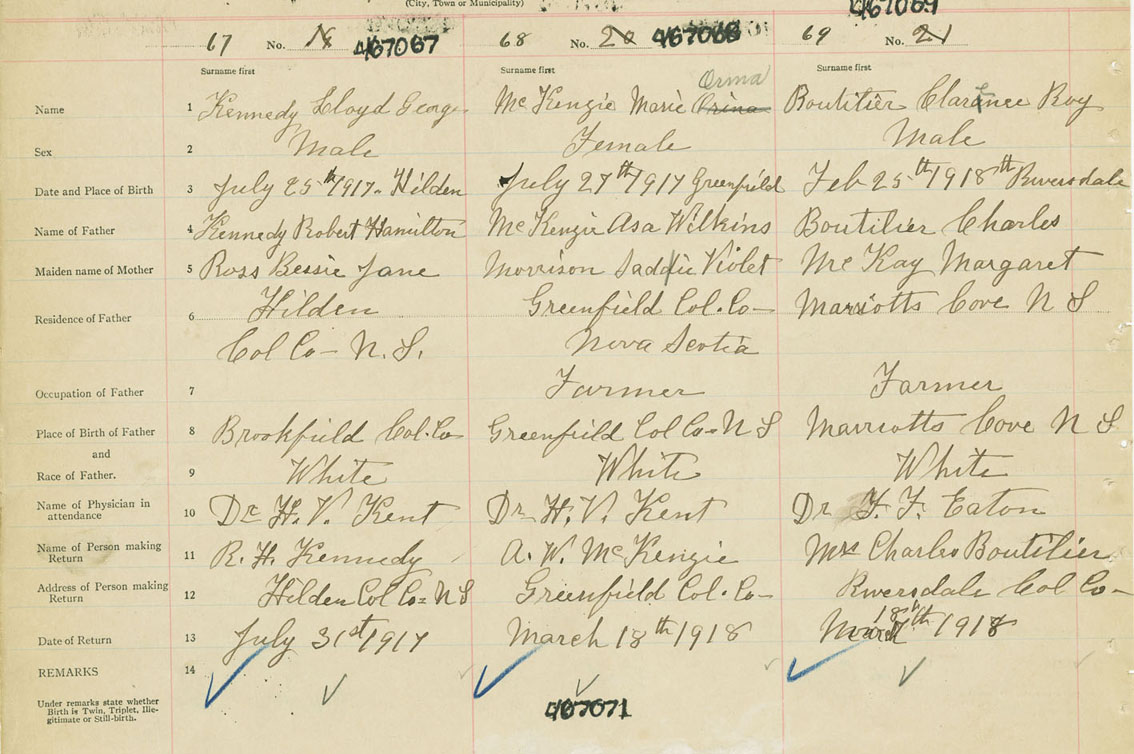 (City, Town or Municipality)
467069
67 No. 467067 68 No. 20 467068 69 No. 21
Surname first Surname first Surname first
Orma
Name 1 Kennedy Lloyd George McKenzie Marie Orina Boutilier Clarence Roy
Sex 2 Male Female Male
Date and Place of Birth 3 July 25th 1917 Hilden July 27th 1917 Greenfield Feb 25th 1918 Riversdale
Name of Father 4 Kennedy Robert Hamilton McKenzie Asa Wilkins Boutilier Charles
Maiden name of Mother 5 Ross Bessie Jane Morrison Saddie Violet McKay Margaret
Residence of Father 6 Hilden Greenfield Col. Co— Marriotts Cove N S
Col Co— N. S. Nova Scotia
Occupation of Father 7 Farmer Farmer
Place of Birth of Father 8 Brookfield Col. Co Greenfield Col Co— N S Marriotts Cove N S
and
Race of Father. 9 White White White
Name of Physician in attendance 10 Dr H. V. Kent Dr H. V. Kent Dr F. F. Eaton
Name of Person making Return 11 R. H. Kennedy A. W. McKenzie Mrs Charles Boutilier
Address of Person making Return 12 Hilden Col Co= N S Greenfield Col. Co— Riversdale Col Co—
Date of Return 13 July 31st 1917 March 18th 1918 March 18th 1918
REMARKS 14
Under remarks state whether
Birth is Twin, Triplet, Ille-
gitimate or Still-birth.
467071